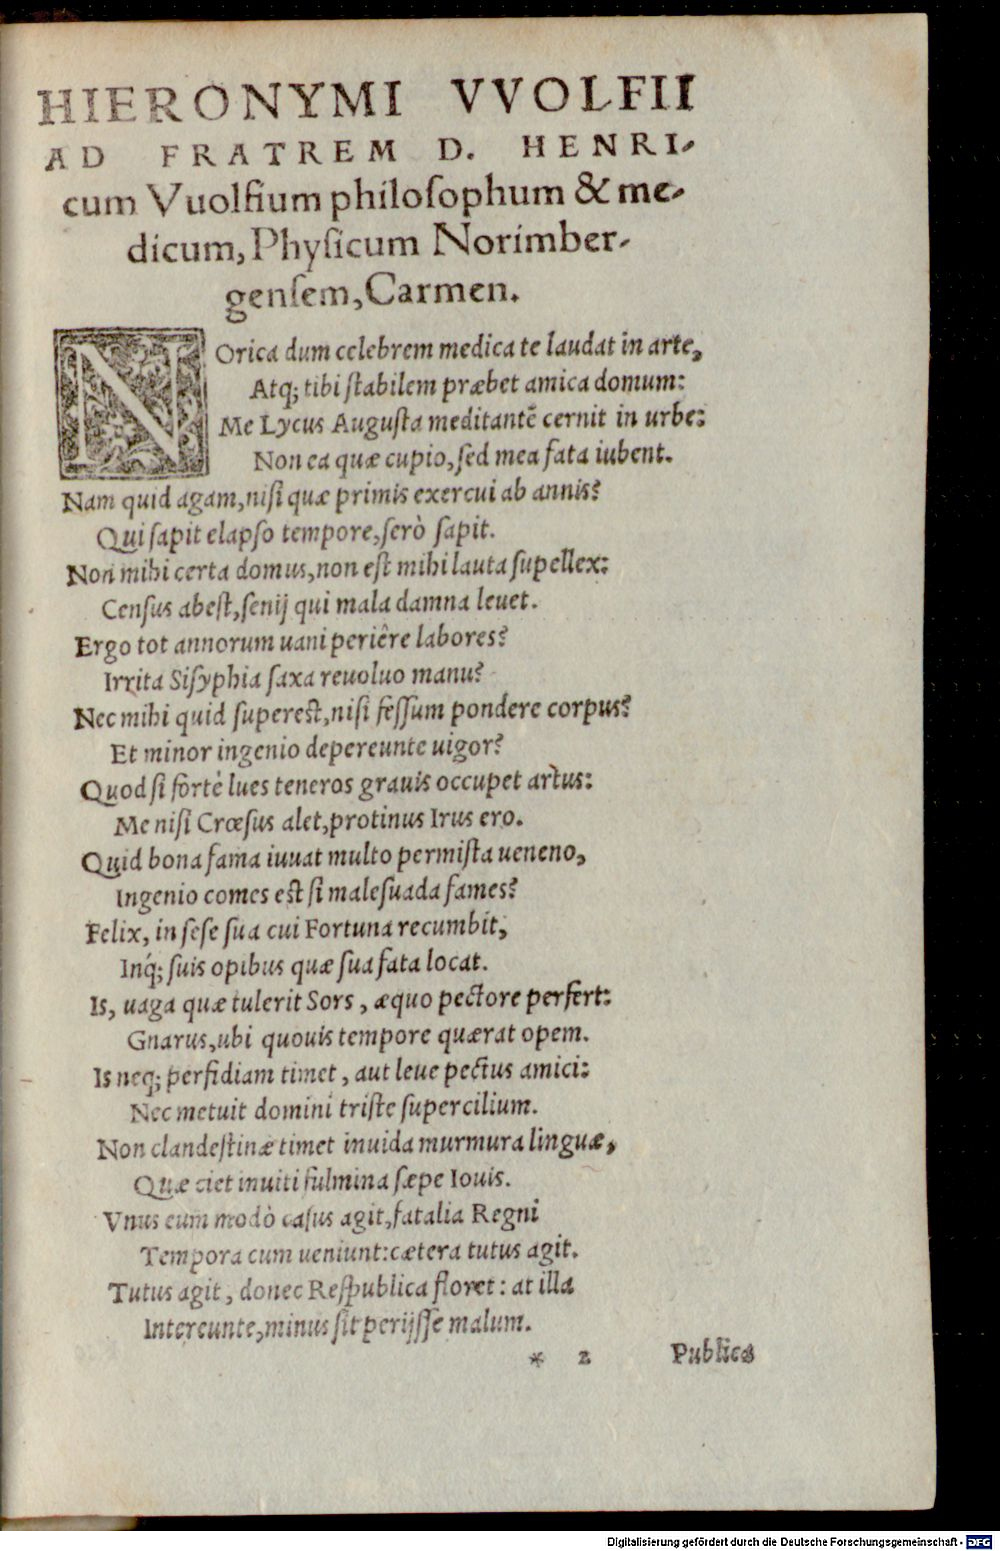 HIERONYMI VVOLFII
AD FRATREM D. HENRI-
cum Vuolfium philoſophum & me-
dicum, Phyſicum Norimber-
genſem, Carmen.
NOrica dum celebrem medica te laudat in arte,
Atq; tibi ſtabilem præbet amica domum:
Me Lycus Auguſta meditantē cernit in urbe:
Non ea quæ cupio, ſed mea fata iubent.
Nam quid agam, niſi quæ primis exercui ab annis?
Qui ſapit elapſo tempore, ſerò ſapit.
Non mihi certa domus, non eſt mihi lauta ſupellex:
Cenſus abeſt, ſenij qui mala damna leuet.
Ergo tot annorum uani periêre labores?
Irrita Siſyphia ſaxa reuoluo manu?
Nec mihi quid ſupereſt, niſi feſſum pondere corpus?
Et minor ingenio depereunte uigor?
Quod ſi fortè lues teneros grauis occupet artus:
Me niſi Crœſus alet, protinus Irus ero.
Quid bona fama iuuat multo permiſta ueneno,
Ingenio comes eſt ſi maleſuada fames?
Felix, in ſeſe ſua cui Fortuna recumbit,
Inq́; ſuis opibus quæ ſua fata locat.
Is, uaga quæ tulerit Sors, æquo pectore perfert:
Gnarus, ubi quouis tempore quærat opem.
Is neq; perfidiam timet, aut leue pectus amici:
Nec metuit domini triſte ſupercilium.
Non clandeſtinæ timet inuida murmura linguæ,
Quæ ciet inuiti fulmina ſæpe Iouis.
Vnus eum modò caſus agit, fatalia Regni
Tempora cum ueniunt: cætera tutus agit.
Tutus agit, donec Reſpublica floret: at illa
Intereunte, minus ſit perijſſe malum.
* 2 Publica
Digitalisierung gefördert durch die Deutsche Forschungsgemeinschaft - DFG